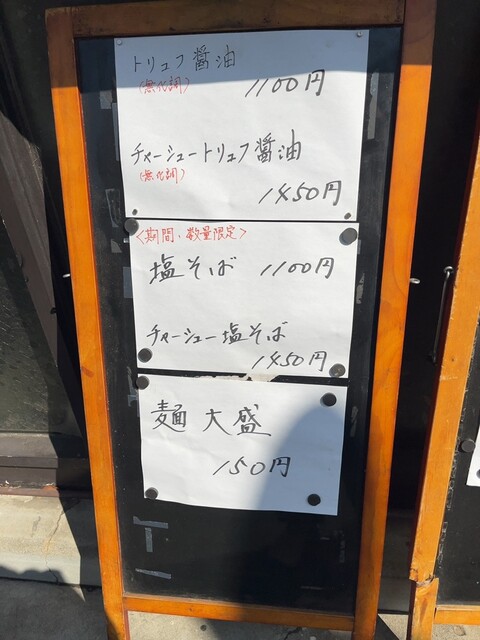 トリュフ醤油
(無化調)
1100円
チャーシュートリュフ醤油
(無化調)
1450円
<期間、数量限定>
塩そば 1100円
チャーシュー塩そば
1450円
麺 大盛
150円